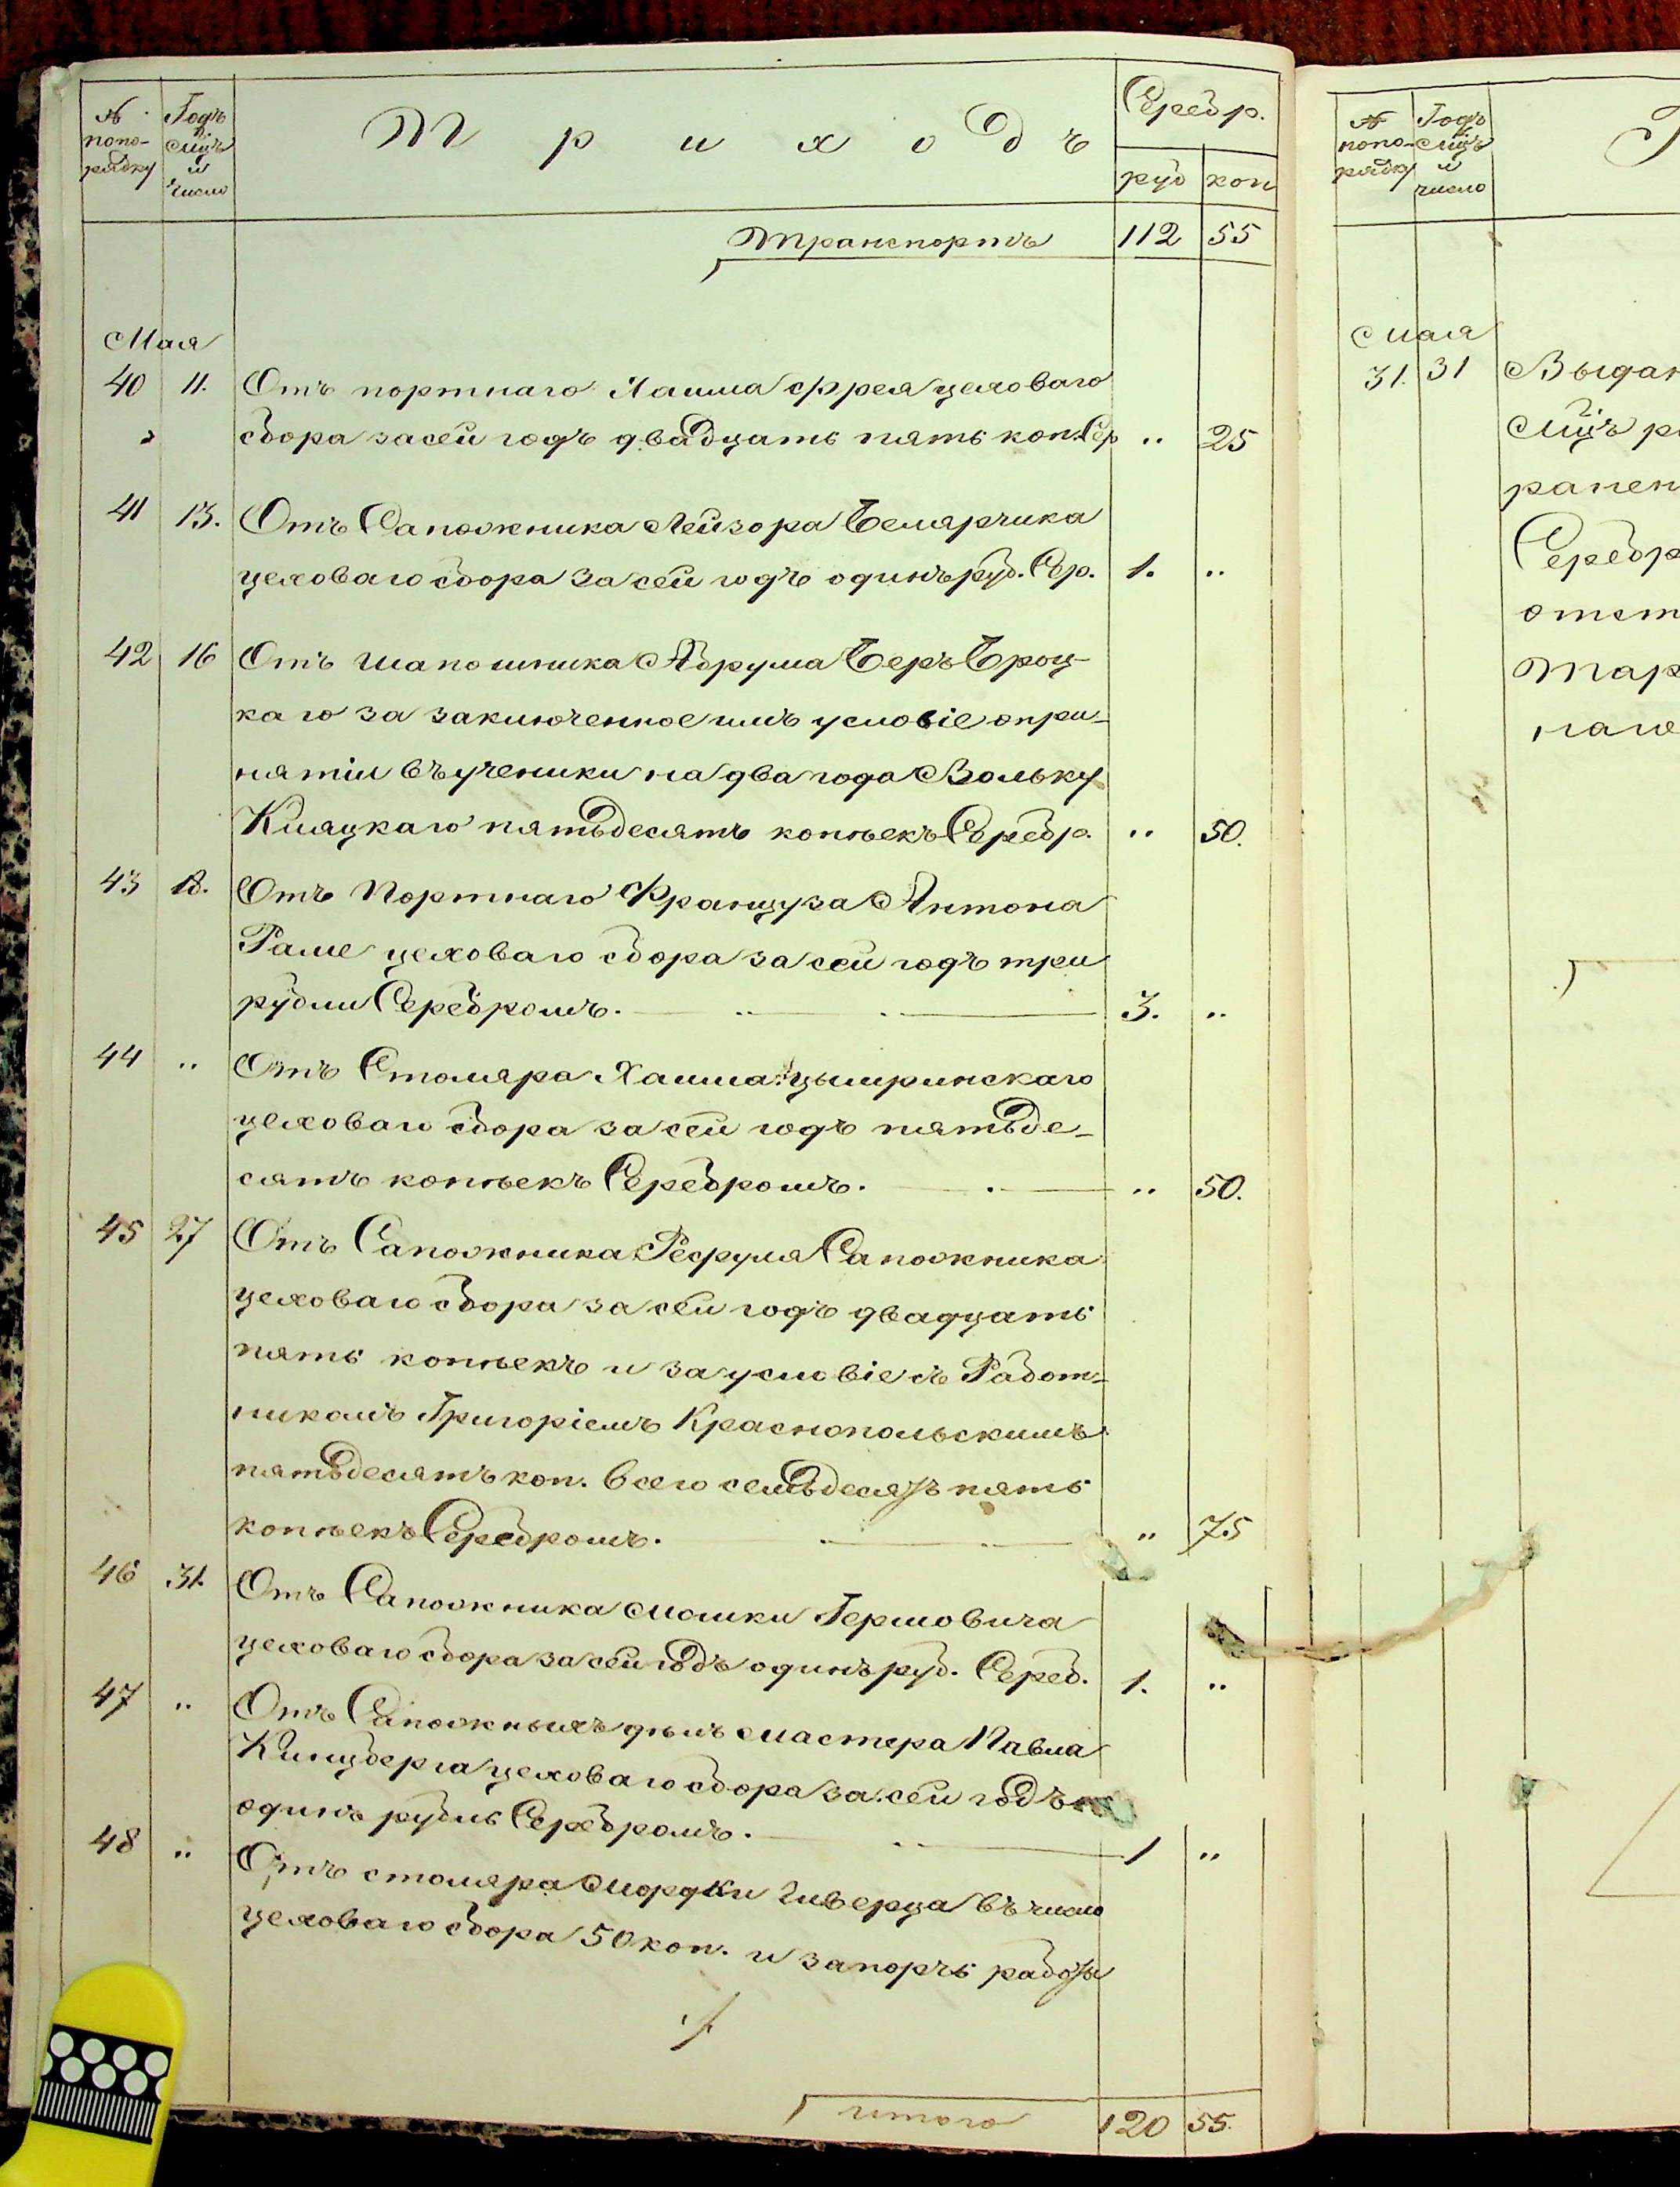 № попо-рядку
Годъ мцъ и число
Приходъ
Серебр.
руб коп
Транспортъ 112 55
Мая
40 11. Отъ портнаго Хаима Фрея цеховаго
сбора за сей годъ двадцать пять коп. Сер „ 25
41 13. Отъ Сапожника Лейзора Белярчика
цеховаго сбора за сей годъ одинъ руб. Сер. 1. „
42 16 Отъ шапошника Абрума Беръ Броц-
каго за заключенное имъ условіе о при-
нятіи въ ученики на два года Вольку
Кляцкаго пятьдесятъ копѣекъ Серебр. „ 50.
43 18. Отъ Портнаго Француза Антона
Раме цеховаго сбора за сей годъ три
рубли Серебромъ. 3. „
44 „ Отъ Столяра Хаима Цымринскаго
цеховаго сбора за сей годъ пятьде-
сятъ копѣекъ Серебромъ. „ 50.
45 27 Отъ Сапожника Сапожника
цеховаго сбора за сей годъ двадцать
пять копѣекъ и за условіе съ Работ-
никомъ Григоріемъ Краснопольскимъ
пятьдесятъ коп. всего семьдесятъ пять
копѣекъ Серебромъ. „ 75
46 31. Отъ Сапожника Мошки Гершовича
цеховаго сбора за сей годъ одинъ руб. Сереб. 1. „
47 „ Отъ Сапожныхъ дѣлъ мастера Павла
Кинцберга цеховаго сбора за сей годъ
одинъ рубль Серебромъ. 1 „
48 „ Отъ столяра Мордки въ число
цеховаго сбора 50 коп. и за порчь работы
·/.
итого 120 55.
№ попо-рядку
Годъ мцъ и число
Мая
31. 31 Выдан
мцъ р
ранен
Серебр
отст
Тар
наго